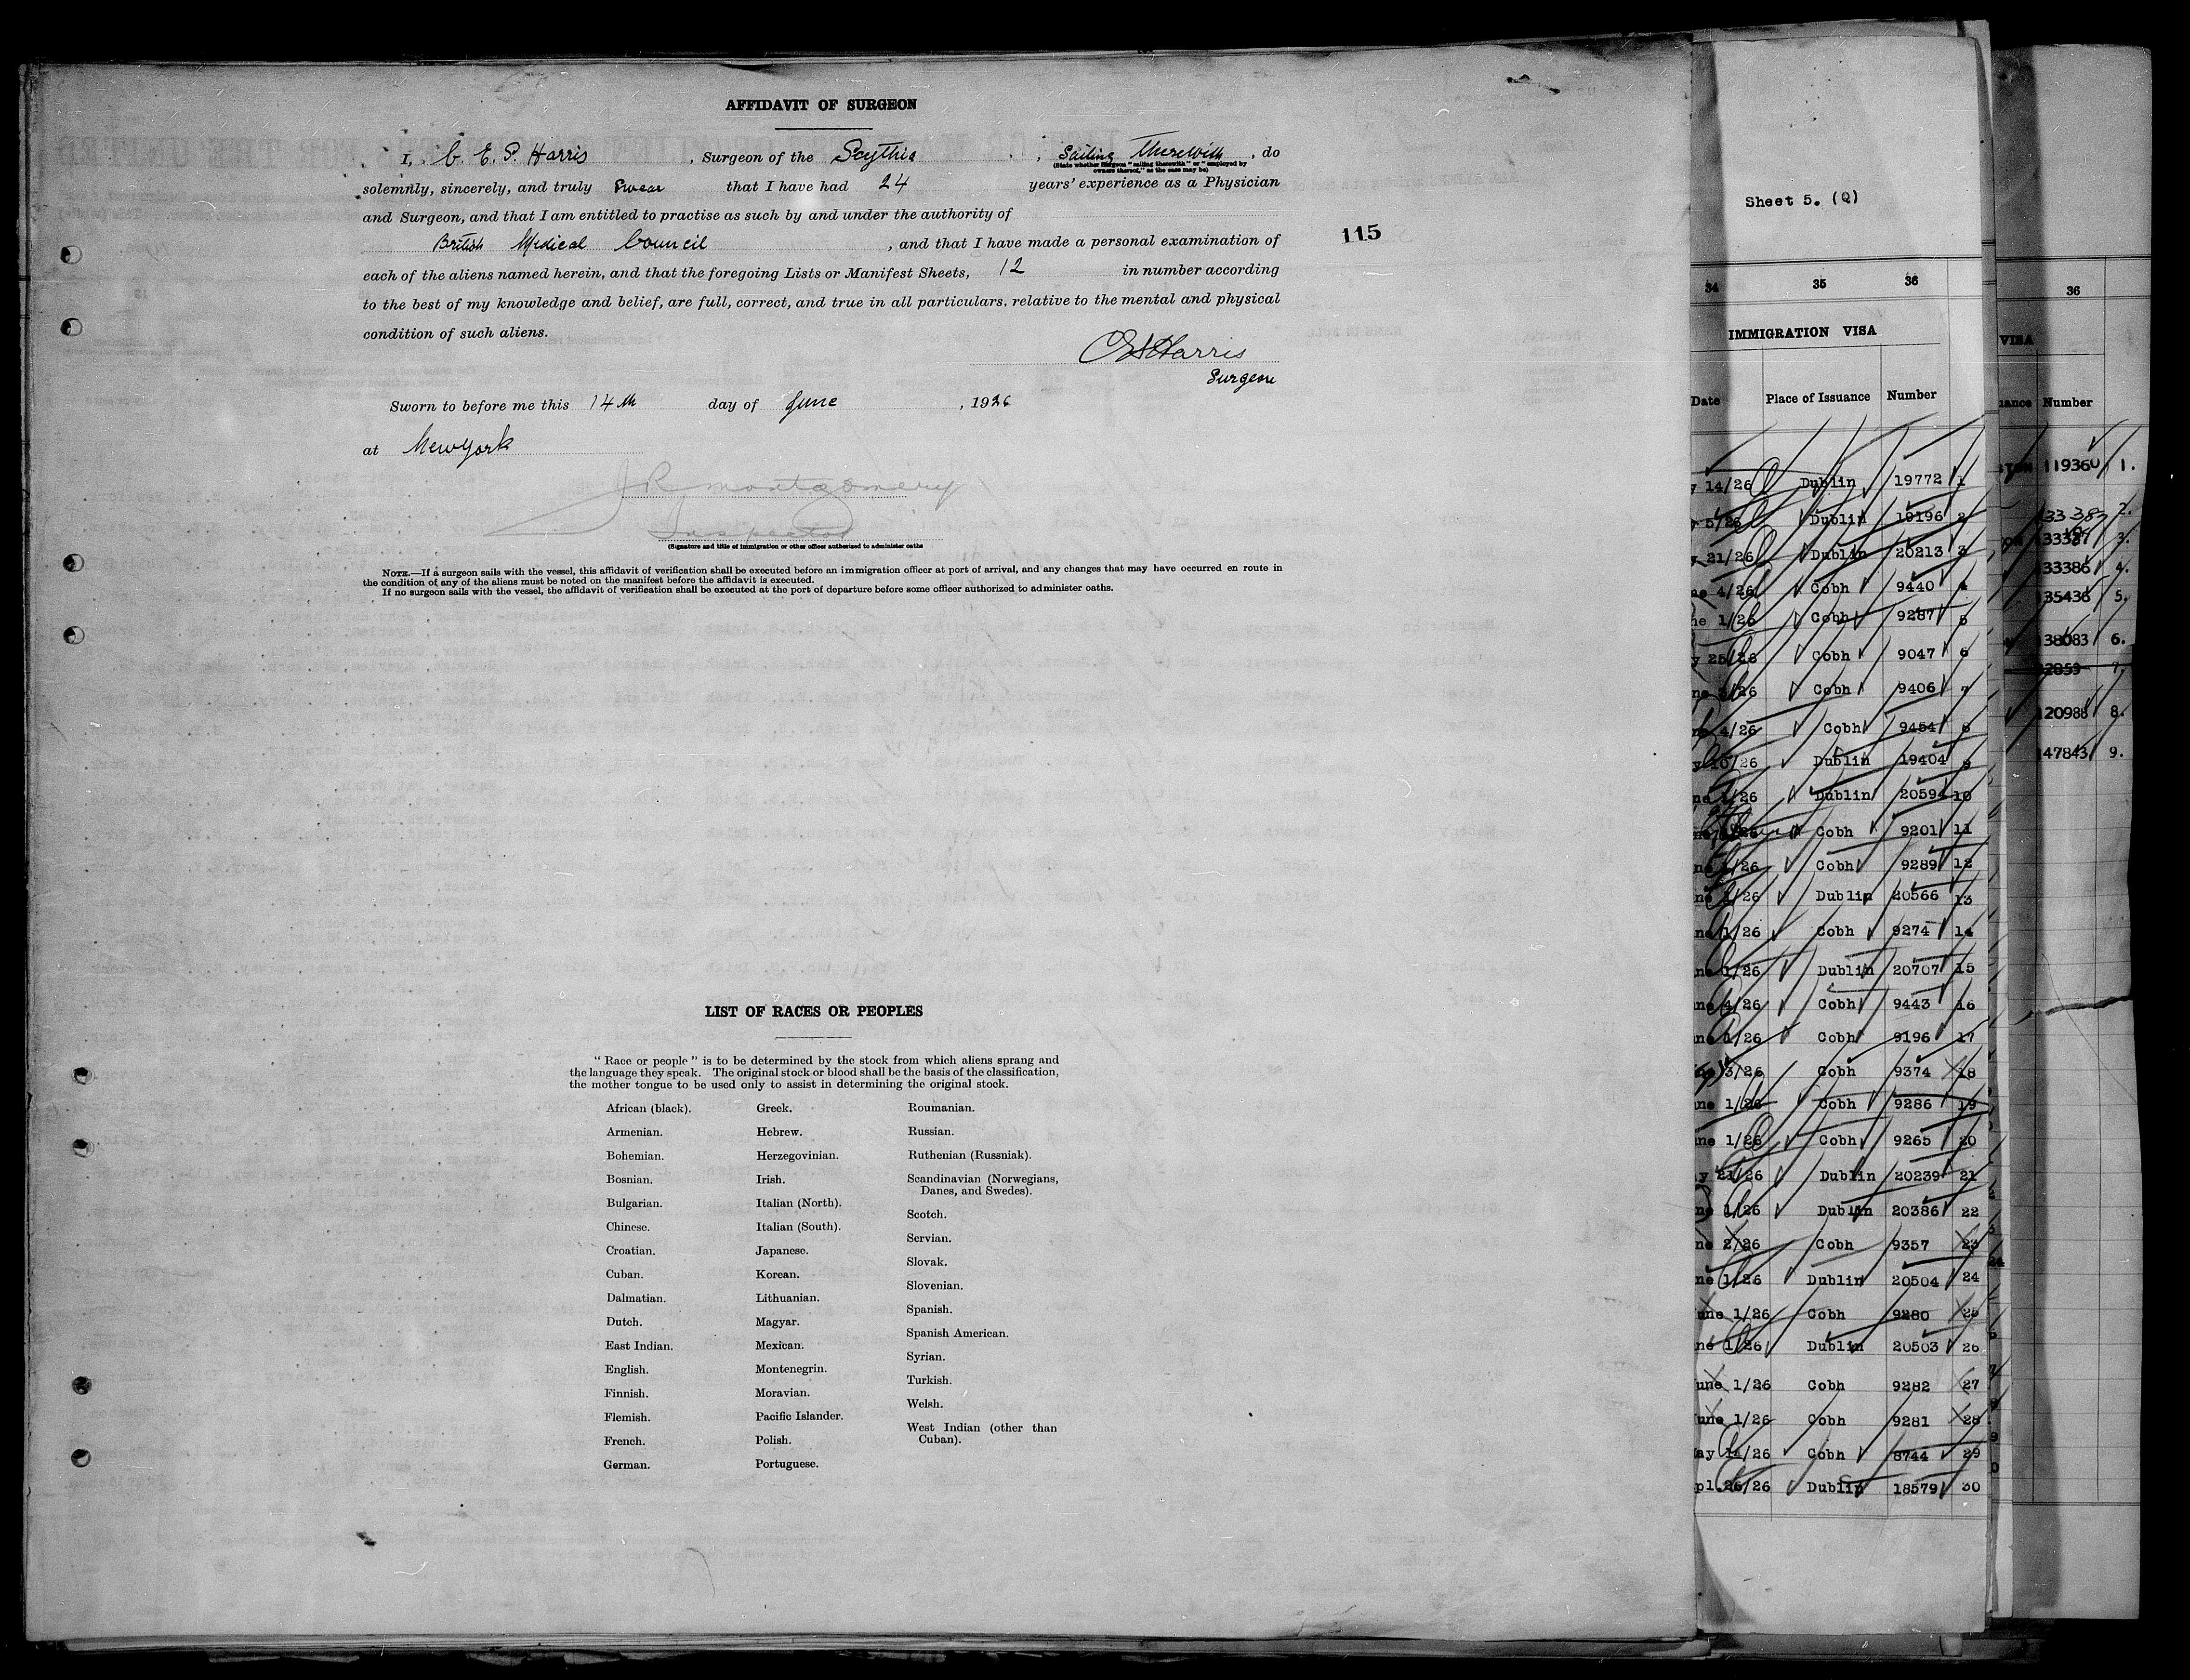 AFFIDAVIT OF SURGEON
I, C. E. S. Harris, Surgeon of the Scythia, Sailing Therewith, do
(State whether Surgeon "sailing therewith" or "employed by
owners thereof," as the case may be)
solemnly, sincerely, and truly swear that I have had 24 years' experience as a Physician
and Surgeon, and that I am entitled to practise as such by and under the authority of
British Medical Council, and that I have made a personal examination of
115
each of the aliens named herein, and that the foregoing Lists or Manifest Sheets, 12 in number according
to the best of my knowledge and belief, are full, correct, and true in all particulars. relative to the mental and physical
condition of such aliens.
CES Harris
Surgeon
Sworn to before me this 14th day of June, 1926
at New York
J R Montgomery
Inspector
(Signature and title of immigration or other officer authorized to administer oaths
NOTE.—If a surgeon sails with the vessel, this affidavit of verification shall be executed before an immigration officer at port of arrival, and any changes that may have occurred en route in
the condition of any of the aliens must be noted on the manifest before the affidavit is executed.
If no surgeon sails with the vessel, the affidavit of verification shall be executed at the port of departure before some officer authorized to administer oaths.
LIST OF RACES OR PEOPLES
"Race or people" is to be determined by the stock from which aliens sprang and
the language they speak. The original stock or blood shall be the basis of the classification,
the mother tongue to be used only to assist in determining the original stock.
African (black).
Armenian.
Bohemian.
Bosnian.
Bulgarian.
Chinese.
Croatian.
Cuban.
Dalmatian.
Dutch.
East Indian.
English.
Finnish.
Flemish.
French.
German.
Greek.
Hebrew.
Herzegovinian.
Irish.
Italian (North).
Italian (South).
Japanese.
Korean.
Lithuanian.
Magyar.
Mexican.
Montenegrin.
Moravian.
Pacific Islander.
Polish.
Portuguese.
Roumanian.
Russian.
Ruthenian (Russniak).
Scandinavian (Norwegians,
Danes, and Swedes).
Scotch.
Servian.
Slovak.
Slovenian.
Spanish.
Spanish American.
Syrian.
Turkish.
Welsh.
West Indian (other than
Cuban).
Sheet 5. (Q)
34 35 36
IMMIGRATION VISA
Date Place of Issuance Number
y 14/26 Dublin 19772 1
y 5/26 Dublin 19196 2
y 21/26 Dublin 20213 3
ne 4/26 Cobh 9440 4
ne 1/26 Cobh 9287 5
y 25/26 Cobh 9047 6
ne 3/26 Cobh 9406 7
ne 4/26 Cobh 9454 8
y 10/26 Dublin 19404 9
ne 1/26 Dublin 20594 10
ne /26 Cobh 9201 11
ne 1/26 Cobh 9289 12
ne 1/26 Dublin 20566 13
ne 1/26 Cobh 9274 14
ne 1/26 Dublin 20707 15
une 4/26 Cobh 9443 16
une 1/26 Cobh 9196 17
3/26 Cobh 9374 18
une 1/26 Cobh 9286 19
une 1/26 Cobh 9265 20
y 21/26 Dublin 20239 21
ne 1/26 Dublin 20386 22
ne 2/26 Cobh 9357 23
ne 1/26 Dublin 20504 24
une 1/26 Cobh 9280 25
ne 1/26 Dublin 20503 26
une 1/26 Cobh 9282 27
une 1/26 Cobh 9281 28
ay 14/26 Cobh 8744 29
pl.26/26 Dublin 18579 30
36
VISA
uance Number
TON 119360 1.
33383 2.
ON 3.
33386 4.
35436 5.
38083 6.
2853 7.
20988 8.
47843 9.